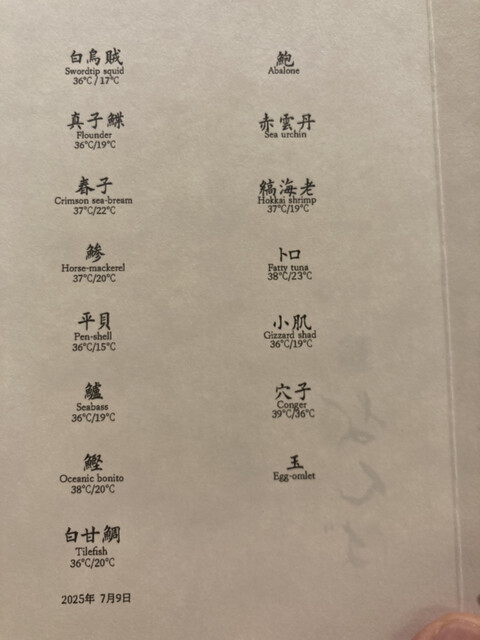 白烏賊
Swordtip squid
36℃/17℃
真子鰈
Flounder
36℃/19℃
春子
Crimson sea-bream
37℃/22℃
鰺
Horse-mackerel
37℃/20℃
平貝
Pen-shell
36℃/15℃
鱸
Seabass
36℃/19℃
鰹
Oceanic bonito
38℃/20℃
白甘鯛
Tilefish
36℃/20℃
2025年 7月9日
鮑
Abalone
赤雲丹
Sea urchin
縞海老
Hokkai shrimp
37℃/19℃
トロ
Fatty tuna
38℃/23℃
小肌
Gizzard shad
36℃/19℃
穴子
Conger
39℃/36℃
玉
Egg-omlet